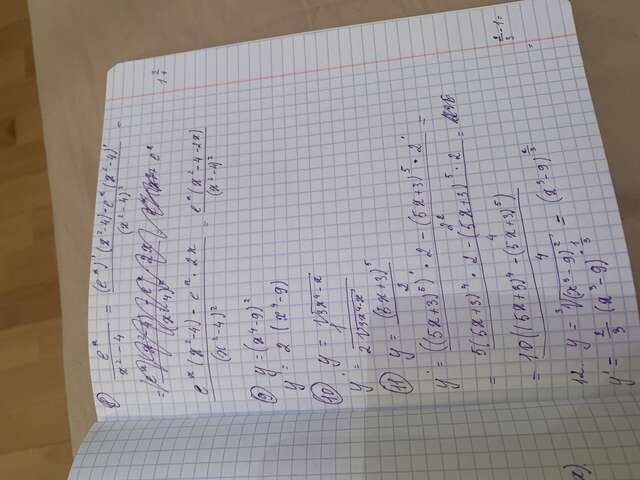 8) e^x / (x²-4) = ((e^x)' (x²-4) - e^x (x²-4)') / (x²-4)² =
(e^x (x²-4) - e^x · 2x) / (x²-4)² = e^x (x²-4-2x) / (x²-4)²
9) y = (x⁴-9)²
y' = 2 (x⁴-9)
10) y = √(3x⁴-x)
y' = 1 / (2√(3x⁴-x))
11) y = (5x+3)⁵ / 2
y' = (((5x+3)⁵)' · 2 - (5x+3)⁵ · 2') / 2² =
= (5(5x+3)⁴ · 2 - (5x+3)⁵ · 2) / 4 =
= 10((5x+3)⁴ - (5x+3)⁵) / 4
2/3 - 1 =
=
12. y = ³√((x³-9)²) = (x³-9)^(2/3)
y' = 2/3 (x³-9)^(-1/3)
x).